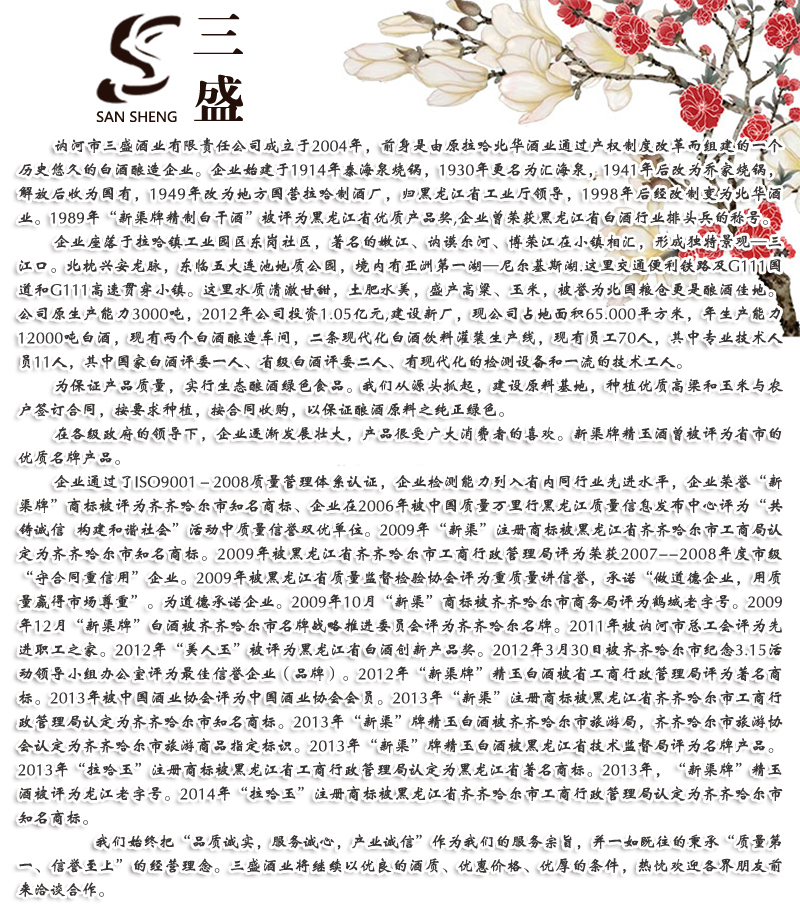 三
盛
SAN SHENG
讷河市三盛酒业有限责任公司成立于2004年，前身是由原拉哈北华酒业通过产权制度改革而组建的一个
历史悠久的白酒酿造企业。企业始建于1914年泰海泉烧锅，1930年更名为汇海泉，1941年后改为乔家烧锅，
解放后收为国有，1949年改为地方国营拉哈制酒厂，归黑龙江省工业厅领导，1998年后经改制变为北华酒
业。1989年“新渠牌精制白干酒”被评为黑龙江省优质产品奖,企业曾荣获黑龙江省白酒行业排头兵的称号。
企业座落于拉哈镇工业园区东岗社区，著名的嫩江、讷谟尔河、博荣江在小镇相汇，形成独特景观—三
江口。北枕兴安龙脉，东临五大连池地质公园，境内有亚洲第一湖—尼尔基斯湖.这里交通便利铁路及G111国
道和G111高速贯穿小镇。这里水质清澈甘甜，土肥水美，盛产高粱、玉米，被誉为北国粮仓更是酿酒佳地。
公司原生产能力3000吨，2012年公司投资1.05亿元,建设新厂，现公司占地面积65.000平方米，年生产能力
12000吨白酒，现有两个白酒酿造车间，二条现代化白酒饮料灌装生产线，现有员工70人，其中专业技术人
员11人，其中国家白酒评委一人、省级白酒评委二人、有现代化的检测设备和一流的技术工人。
为保证产品质量，实行生态酿酒绿色食品。我们从源头抓起，建设原料基地，种植优质高粱和玉米与农
户签订合同，按要求种植，按合同收购，以保证酿酒原料之纯正绿色。
在各级政府的领导下，企业逐渐发展壮大，产品很受广大消费者的喜欢。新渠牌精玉酒曾被评为省市的
优质名牌产品。
企业通过了ISO9001-2008质量管理体系认证，企业检测能力列入省内同行业先进水平，企业荣誉“新
渠牌”商标被评为齐齐哈尔市知名商标、企业在2006年被中国质量万里行黑龙江质量信息发布中心评为“共
铸诚信 构建和谐社会”活动中质量信誉双优单位。2009年“新渠”注册商标被黑龙江省齐齐哈尔市工商局认
定为齐齐哈尔市知名商标。2009年被黑龙江省齐齐哈尔市工商行政管理局评为荣获2007--2008年度市级
“守合同重信用”企业。2009年被黑龙江省质量监督检验协会评为重质量讲信誉，承诺“做道德企业，用质
量赢得市场尊重”。为道德承诺企业。2009年10月“新渠”商标被齐齐哈尔市商务局评为鹤城老字号。2009
年12月“新渠牌”白酒被齐齐哈尔市名牌战略推进委员会评为齐齐哈尔名牌。2011年被讷河市总工会评为先
进职工之家。2012年“美人玉”被评为黑龙江省白酒创新产品奖。2012年3月30日被齐齐哈尔市纪念3.15活
动领导小组办公室评为最佳信誉企业（品牌）。2012年“新渠牌”精玉白酒被省工商行政管理局评为著名商
标。2013年被中国酒业协会评为中国酒业协会会员。2013年“新渠”注册商标被黑龙江省齐齐哈尔市工商行
政管理局认定为齐齐哈尔市知名商标。2013年“新渠”牌精玉白酒被齐齐哈尔市旅游局，齐齐哈尔市旅游协
会认定为齐齐哈尔市旅游商品指定标识。2013年“新渠”牌精玉白酒被黑龙江省技术监督局评为名牌产品。
2013年“拉哈玉”注册商标被黑龙江省工商行政管理局认定为黑龙江省著名商标。2013年，“新渠牌”精玉
酒被评为龙江老字号。2014年“拉哈玉”注册商标被黑龙江省齐齐哈尔市工商行政管理局认定为齐齐哈尔市
知名商标。
我们始终把“品质诚实，服务诚心，产业诚信”作为我们的服务宗旨，并一如既往的秉承“质量第
一、信誉至上”的经营理念。三盛酒业将继续以优良的酒质、优惠价格、优厚的条件，热忱欢迎各界朋友前
来洽谈合作。